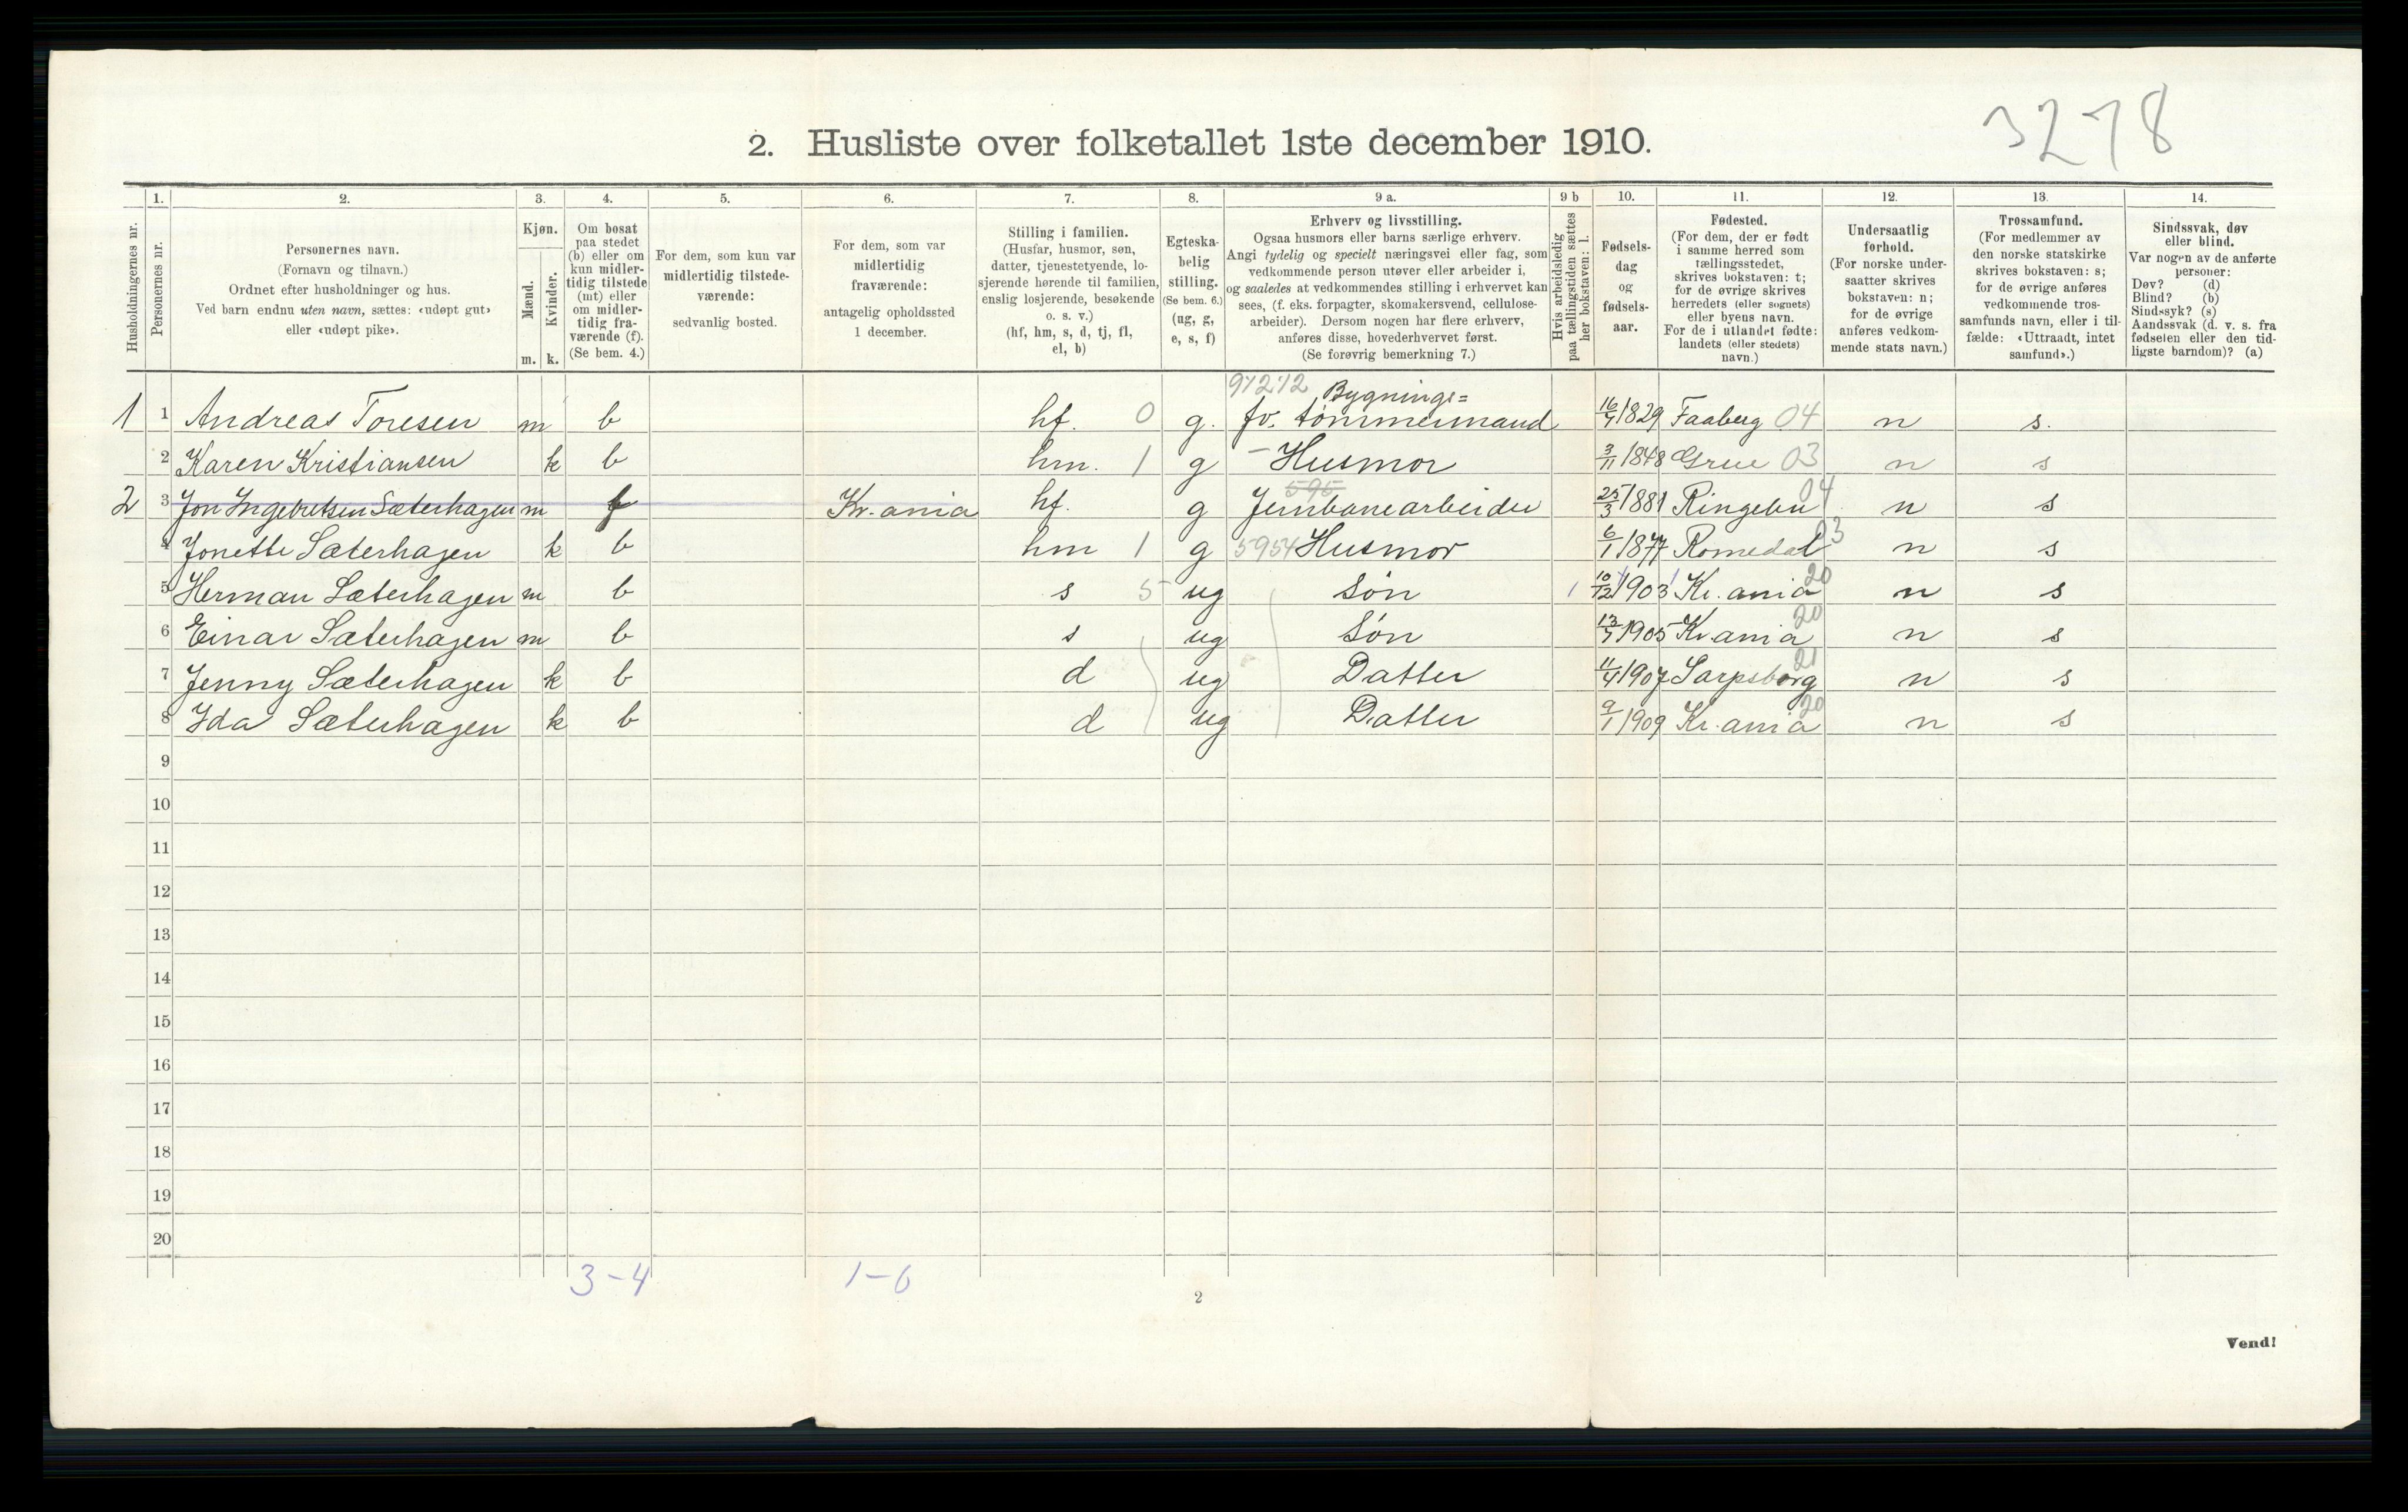 3278
2. Husliste over folketallet 1ste december 1910.
Husholdningernes nr.
1.
Personernes nr.
2.
Personernes navn.
(Fornavn og tilnavn.)
Ordnet efter husholdninger og hus.
Ved barn endnu uten navn, sættes: «udøpt gut»
eller «udøpt pike».
3.
Kjøn.
Mænd.
Kvinder.
m. k.
4.
Om bosat
paa stedet
(b) eller om
kun midler-
tidig tilstede
(mt) eller
om midler-
tidig fra-
værende (f).
(Se bem. 4.)
5.
For dem, som kun var
midlertidig tilstede-
værende:
sedvanlig bosted.
6.
For dem, som var
midlertidig
fraværende:
antagelig opholdssted
1 december.
7.
Stilling i familien.
(Husfar, husmor, søn,
datter, tjenestetyende, lo-
sjerende hørende til familien,
enslig losjerende, besøkende
o. s. v.)
(hf, hm, s, d, tj, fl,
el, b)
8.
Egteska-
belig
stilling.
(Se bem. 6.)
(ug, g,
e, s, f)
9 a.
Erhverv og livsstilling.
Ogsaa husmors eller barns særlige erhverv.
Angi tydelig og specielt næringsvei eller fag, som
vedkommende person utøver eller arbeider i,
og saaledes at vedkommendes stilling i erhvervet kan
sees, (f. eks. forpagter, skomakersvend, cellulose-
arbeider). Dersom nogen har flere erhverv,
anføres disse, hovederhvervet først.
(Se forøvrig bemerkning 7.)
9 b
Hvis arbeidsledig
paa tællingstiden sættes
her bokstaven: l.
10.
Fødsels-
dag
og
fødsels-
aar.
11.
Fødested.
(For dem, der er født
i samme herred som
tællingsstedet,
skrives bokstaven: t;
for de øvrige skrives
herredets (eller sognets)
eller byens navn.
For de i utlandet fødte:
landets (eller stedets)
navn.)
12.
Undersaatlig
forhold.
(For norske under-
saatter skrives
bokstaven: n;
for de øvrige
anføres vedkom-
mende stats navn.)
13.
Trossamfund.
(For medlemmer av
den norske statskirke
skrives bokstaven: s;
for de øvrige anføres
vedkommende tros-
samfunds navn, eller i til-
fælde: «Uttraadt, intet
samfund».)
14.
Sindssvak, døv
eller blind.
Var nogen av de anførte
personer:
Døv? (d)
Blind? (b)
Sindssyk? (s)
Aandssvak (d. v. s. fra
fødselen eller den tid-
ligste barndom)? (a)
Bygnings=
1 1 Andreas Toresen m b hf. 0 g. fv. tømmermand 16/4 1829 Faaberg 04 n s.
2 Karen Kristiansen k b hm. 1 g - Husmor 3/11 1848 Grue 03 n s
2 3 Jon Ingebretsen Sæterhagen m f Kr.ania hf. g 595 Jernbanearbeider 25/3 1881 Ringebu 04 n s
4 Jonette Sæterhagen k b hm 1 g 5954 Husmor 6/1 1877 Romedal 03 n s
5 Herman Sæterhagen m b s 5 ug Søn 1 10/12 1903 Kr.ania 20 n s
6 Einar Sæterhagen m b s ug Søn 13/7 1905 Kr.ania 20 n s
7 Jenny Sæterhagen k b d ug Datter 11/4 1907 Sarpsborg 21 n s
8 Ida Sæterhagen k b d ug Datter 9/1 1909 Kr.ania 20 n s
9
10
11
12
13
14
15
16
17
18
19
20
3-4 1-6
2
Vend!